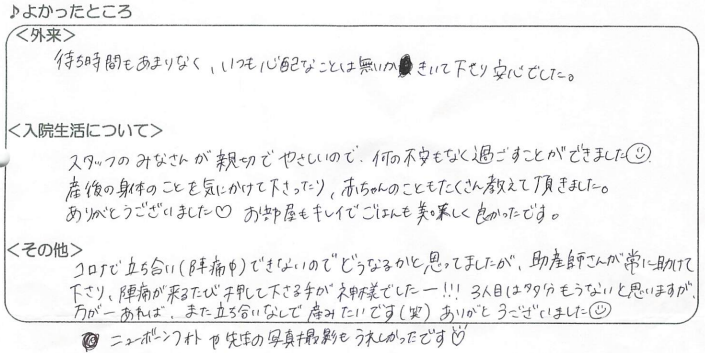 ♪よかったところ
<外来>
待ち時間もあまりなく、いつも心配なことは無いかきいて下さり安心でした。
<入院生活について>
スタッフのみなさんが親切でやさしいので、何の不安もなく過ごすことができました☺
産後の身体のことを気にかけて下さったり、赤ちゃんのこともたくさん教えて頂きました。
ありがとうございました♡ お部屋もキレイでごはんも美味しく良かったです。
<その他>
コロナで立ち合い(陣痛中)できないのでどうなるかと思ってましたが、助産師さんが常に助けて
下さり、陣痛が来るたび押して下さる手が神様でしたー!!! 3人目は多分もうないと思いますが、
万が一あれば、また立ち合いなしで産みたいです(笑) ありがとうございました☺
ニューボーンフォトや先生の写真撮影もうれしかったです♡